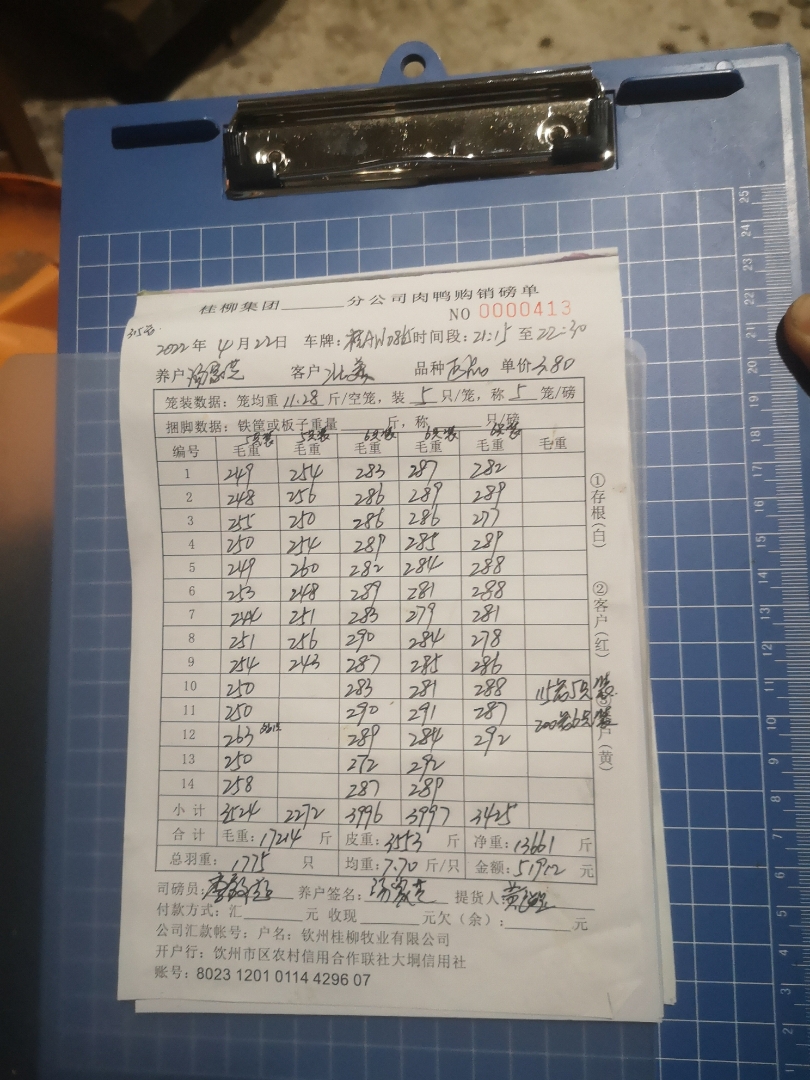 桂柳集团______分公司肉鸭购销磅单
NO 0000413
315笼
2022年4月22日 车牌:桂AW 时间段:21:15至22:30
养户 客户 品种 单价3.80
笼装数据:笼均重11.28斤/空笼,装5只/笼,称5笼/磅
捆脚数据:铁筐或板子重量______斤,称______只/磅
5只装 5只装 6只装 6只装 6只装
编号 毛重 毛重 毛重 毛重 毛重 毛重
1 249 254 283 287 282
2 248 256 286 289 289
3 255 250 286 286 277
4 250 254 289 285 289
5 249 260 282 284 288
6 253 248 289 281 288
7 244 251 283 279 281
8 251 256 290 284 278
9 254 243 287 285 286
10 250 283 281 288 115笼5只装
11 250 290 291 287 200笼6只装
12 263 289 284 292
13 250 272 292
14 258 287 289
小计 3524 2272 3996 3997 3425
合计 毛重:17214斤 皮重:3553斤 净重:13661斤
总羽重:1775只 均重:7.70斤/只 金额:51912元
司磅员: 养户签名: 提货人
付款方式:汇______元 收现______元欠(余):______元
公司汇款帐号:户名:钦州桂柳牧业有限公司
开户行:钦州市区农村信用合作联社大垌信用社
账号:8023 1201 0114 4296 07
①存根(白) ②客户(红) ③ 户(黄)